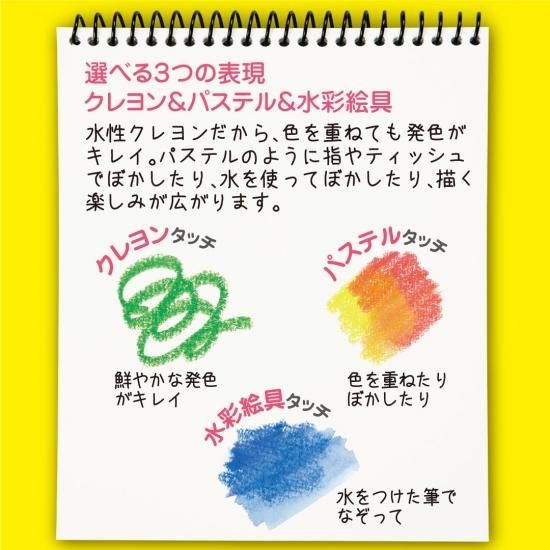 選べる3つの表現
クレヨン&パステル&水彩絵具
水性クレヨンだから、色を重ねても発色が
キレイ。パステルのように指やティッシュ
でぼかしたり、水を使ってぼかしたり、描く
楽しみが広がります。
クレヨンタッチ
鮮やかな発色
がキレイ
パステルタッチ
色を重ねたり
ぼかしたり
水彩絵具タッチ
水をつけた筆で
なぞって